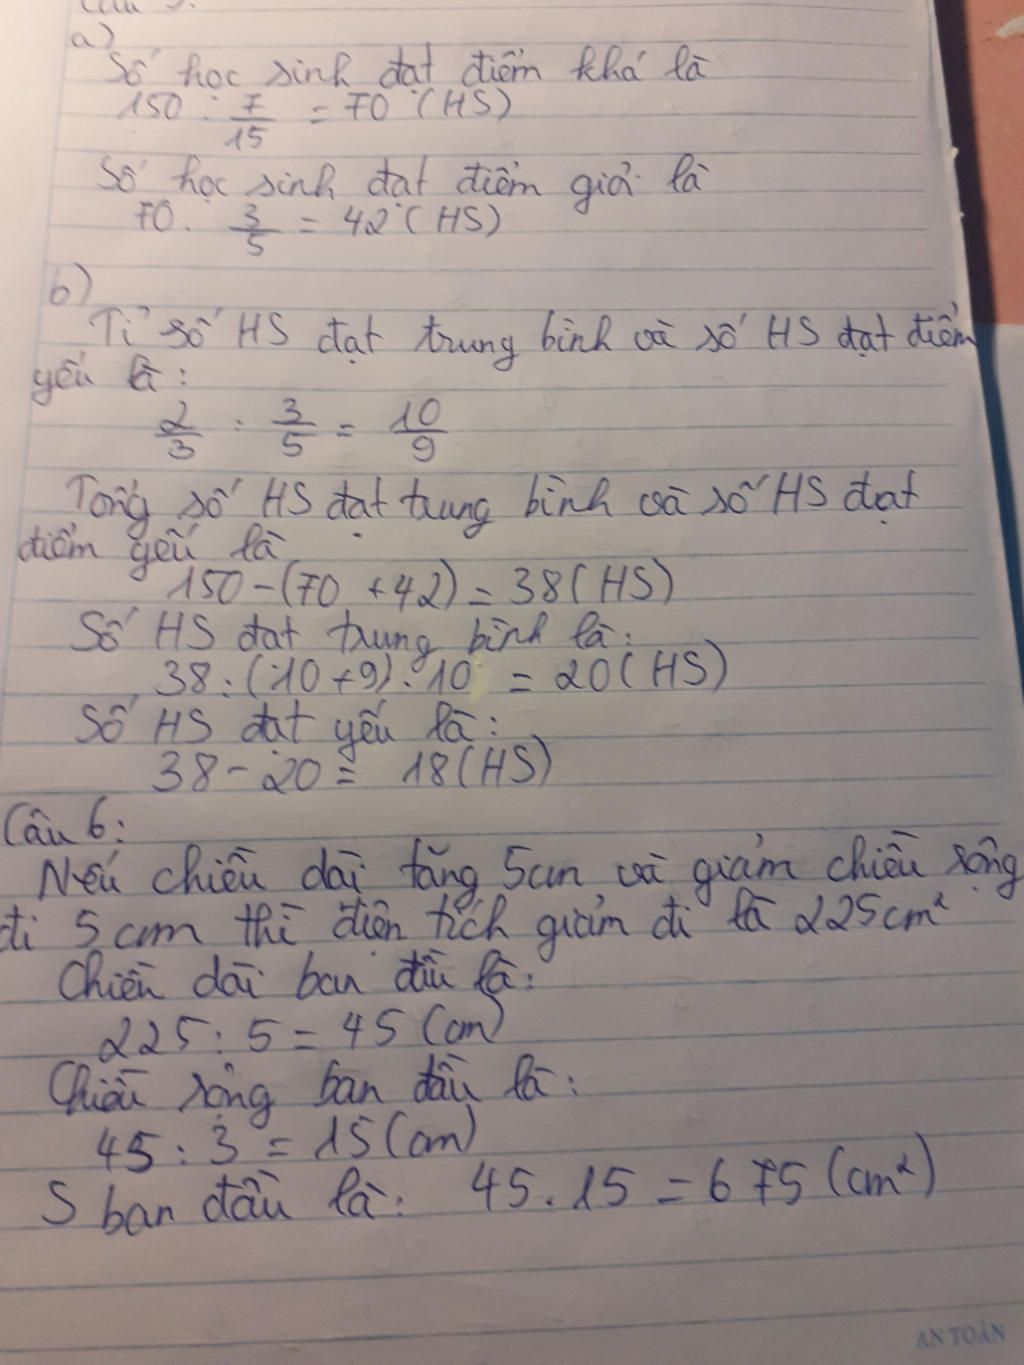 Câu 5:
a)
Số học sinh đạt điểm khá là
150 . 7/15 = 70 (HS)
Số học sinh đạt điểm giỏi là
70 . 3/5 = 42 (HS)
b)
Tỉ số HS đạt trung bình và số HS đạt điểm
yếu là:
2/3 : 3/5 = 10/9
Tổng số HS đạt trung bình và số HS đạt
điểm yếu là
150 - (70 + 42) = 38 (HS)
Số HS đạt trung bình là:
38 : (10 + 9) . 10 = 20 (HS)
Số HS đạt yếu là:
38 - 20 = 18 (HS)
Câu 6:
Nếu chiều dài tăng 5cm và giảm chiều rộng
đi 5 cm thì diện tích giảm đi là 225cm²
Chiều dài ban đầu là:
225 : 5 = 45 (cm)
Chiều rộng ban đầu là:
45 : 3 = 15 (cm)
S ban đầu là: 45 . 15 = 675 (cm²)
AN TOÀN